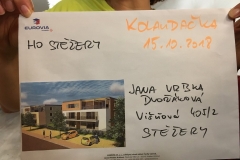 EUROVIA
KOLAUDAČKA
15.10.2018
MO STĚŽERY
JANA VRBSKÁ
DVOŘÁKOVÁ
VIŠŇOVÁ 405/2
STĚŽERY